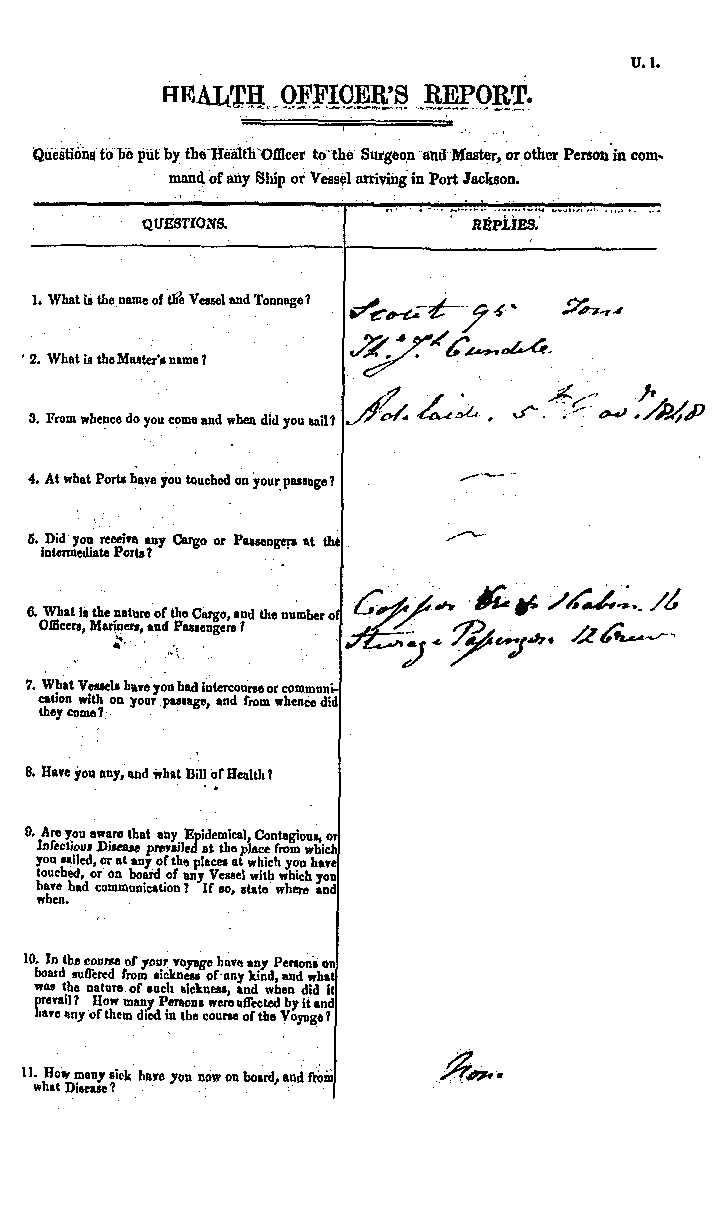 U. 1.
HEALTH OFFICER'S REPORT.
Questions to be put by the Health Officer to the Surgeon and Master, or other Person in com-
mand of any Ship or Vessel arriving in Port Jackson.
QUESTIONS. REPLIES.
1. What is the name of the Vessel and Tonnage? Scout 95 Tons
2. What is the Master's name? Ths. Jh. Cundele
3. From whence do you come and when did you sail? Adelaide, 5th Novr. 1848
4. At what Ports have you touched on your passage? —
5. Did you receive any Cargo or Passengers at the —
intermediate Ports?
6. What is the nature of the Cargo, and the number of Copper 1 Cabin. 16
Officers, Mariners, and Passengers? Steerage Passengers 12 Crew
7. What Vessels have you had intercourse or communi-
cation with on your passage, and from whence did
they come?
8. Have you any, and what Bill of Health?
9. Are you aware that any Epidemical, Contagious, or
Infectious Disease prevailed at the place from which
you sailed, or at any of the places at which you have
touched, or on board of any Vessel with which you
have had communication? If so, state where and
when.
10. In the course of your voyage have any Persons on
board suffered from sickness of any kind, and what
was the nature of such sickness, and when did it
prevail? How many Persons were affected by it and
have any of them died in the course of the Voyage?
11. How many sick have you now on board, and from None
what Disease?